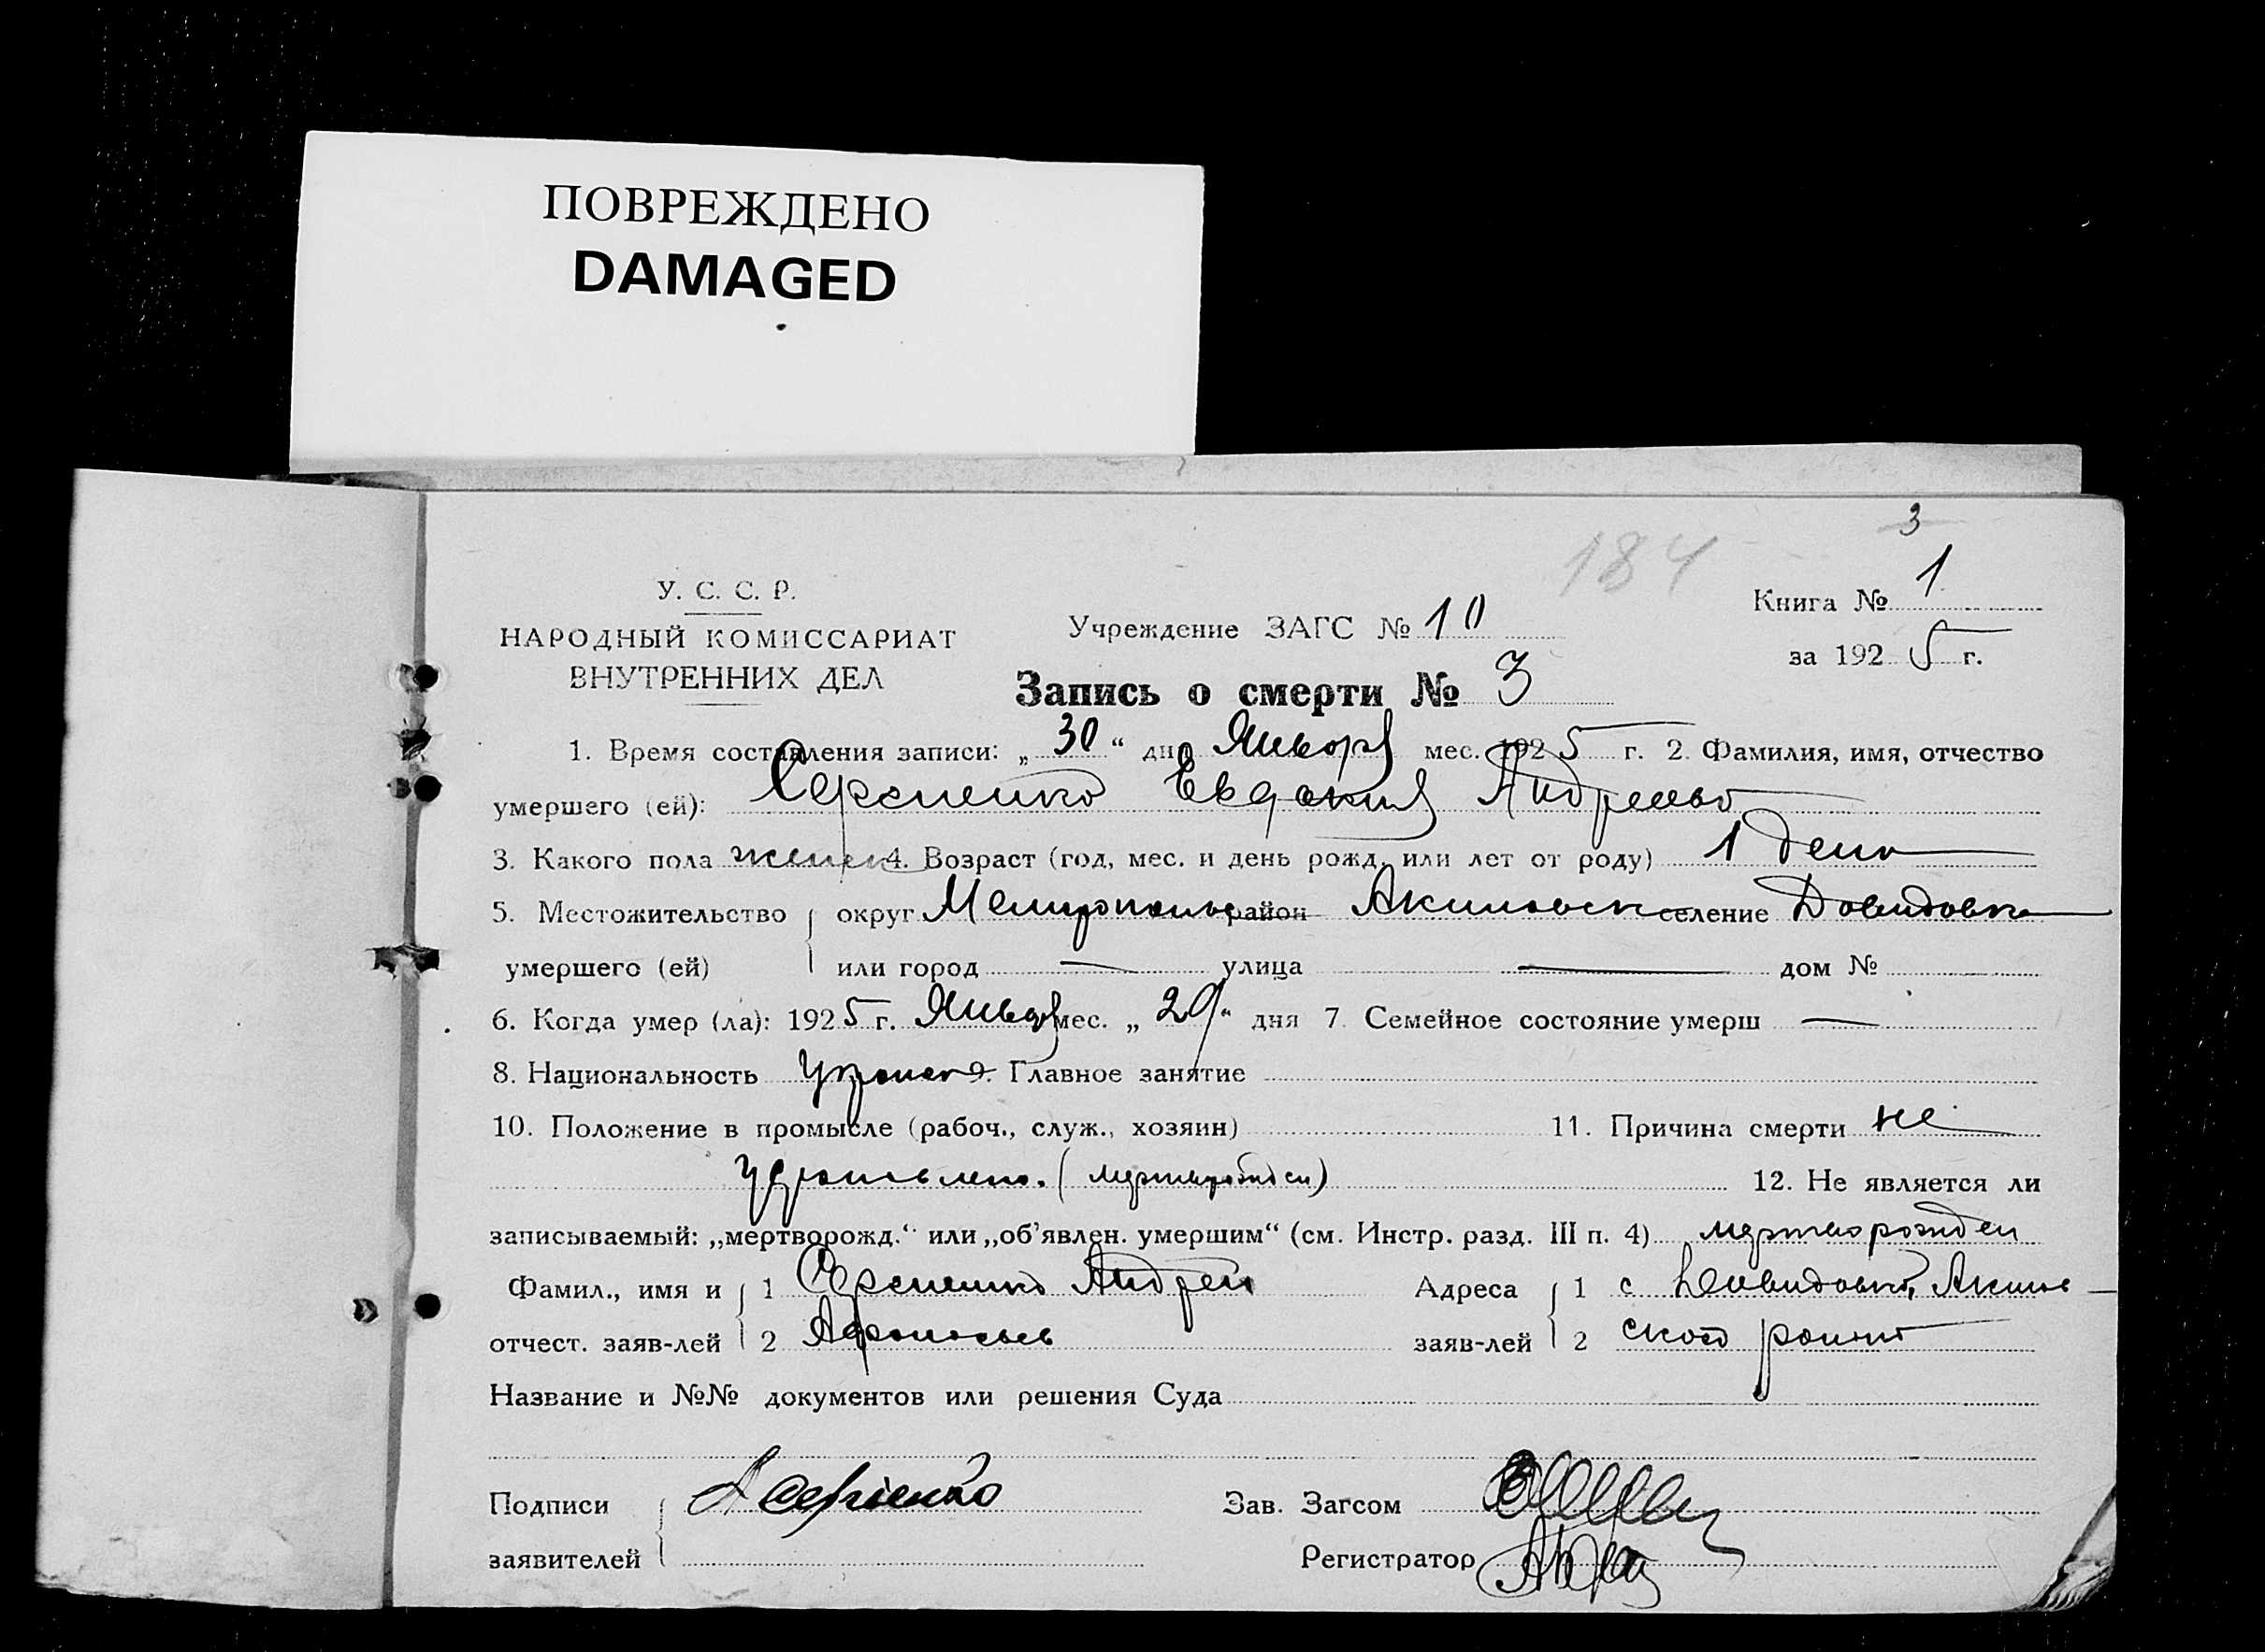 ПОВРЕЖДЕНО
DAMAGED
3
184
У. С. С. Р.
Книга № 1
НАРОДНЫЙ КОМИССАРИАТ
ВНУТРЕННИХ ДЕЛ
Учреждение ЗАГС № 10
за 1925 г.
Запись о смерти № 3
1. Время составления записи: „30“ дня Января мес. 1925 г. 2. Фамилия, имя, отчество
умершего (ей): Сергиенко Евдокия Андреевна
3. Какого пола женск 4. Возраст (год, мес. и день рожд. или лет от роду) 1 день
5. Местожительство округ Мелитополь район Акимовск селение Давидовка
умершего (ей) или город — улица — дом №
6. Когда умер (ла): 1925 г. Января мес. „29“ дня 7. Семейное состояние умерш —
8. Национальность украин 9. Главное занятие
10. Положение в промысле (рабоч., служ., хозяин) 11. Причина смерти не
установлено. (мертворожден) 12. Не является ли
записываемый: „мертворожд.“ или „об'явлен. умершим“ (см. Инстр. разд. III п. 4) мертворожден
Фамил., имя и 1 Сергиенко Андрей Адреса 1 с Давидовка, Акимов
отчест. заяв-лей 2 Афанасьев заяв-лей 2 ского района
Название и №№ документов или решения Суда
Подписи А Сергіенко Зав. Загсом
заявителей Регистратор